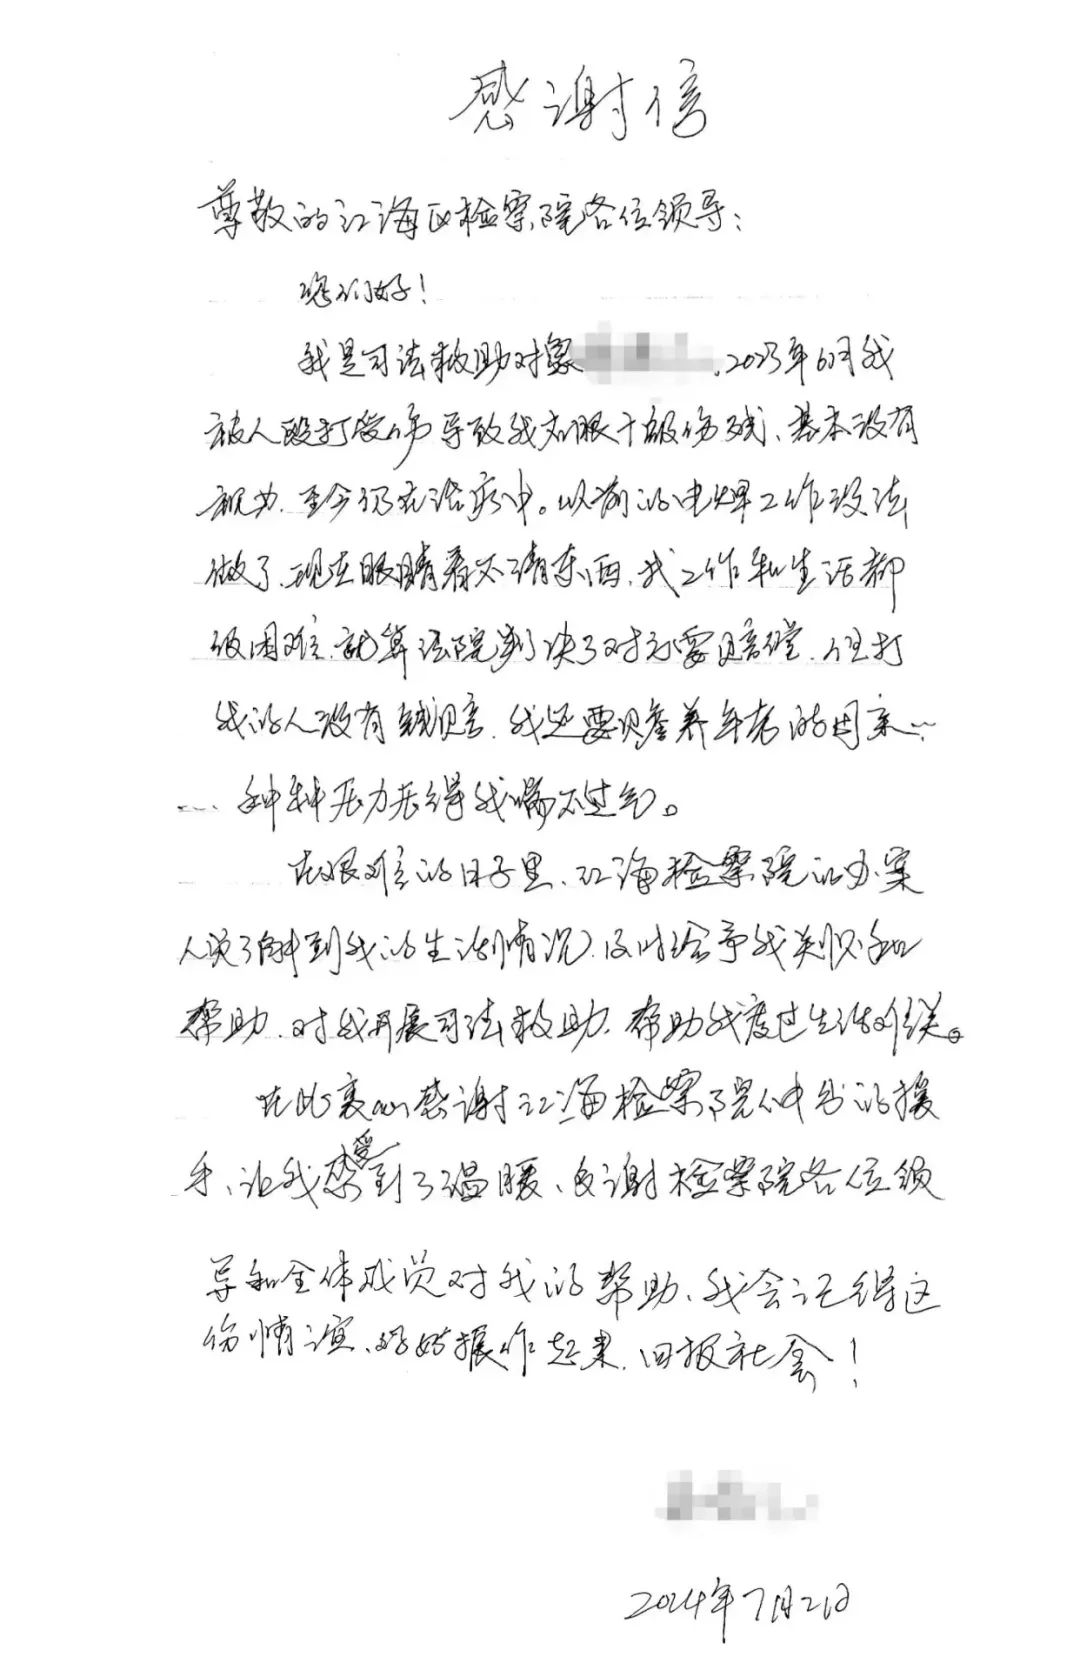 感谢信
尊敬的江海区检察院各位领导：
您们好！
我是司法救助对象 ，2023年6月我
被人殴打受伤导致我右眼十级伤残、基本没有
视力、至今仍无法痊愈。以前的电焊工作没法
做了、现在眼睛看不清东西、我工作和生活都
很困难、就算法院判决了对方要赔偿、但打
我的人没有钱赔、我还要赡养年老的母亲……
……种种压力压得我喘不过气。
在艰难的日子里、江海检察院的办案
人员了解到我的生活情况、及时给予我关怀和
帮助、对我开展司法救助、帮助我度过生活难关。
在此衷心感谢江海检察院伸出的援
手、让我感受到了温暖、感谢检察院各位领
导和全体成员对我的帮助、我会记得这
份情谊、好好振作起来、回报社会！
2024年7月2日